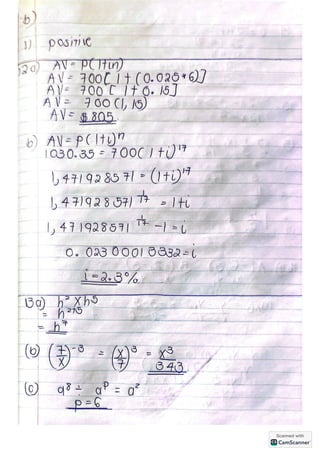 b)
1) positive
12a) AV = P(1+in)
AV = 700[1+(0.025*6)]
AV = 700[1+0.15]
AV = 700(1,15)
AV = $805
b) AV = P(1+i)ⁿ
1030.35 = 700(1+i)¹⁷
1,471928571 = (1+i)¹⁷
1,471928571^(1/17) = 1+i
1,471928571^(1/17) -1 = i
i = 2.3%
13a) h² x h⁵
= h²⁺⁵
= h⁷
(b) (7/x)⁻³ = (x/7)³ = x³/343
(c) a⁸ ÷ aᵖ = a²
p = 6
Scanned with
CS CamScanner